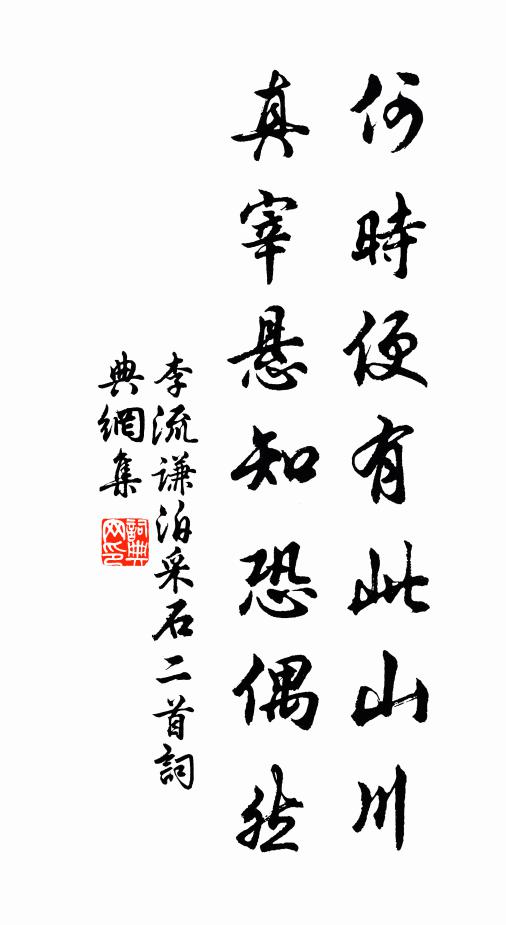 何時便有此山川
真宰悬知恐偶然
李流谦泊采石二首詞
典網集
詞典
网印